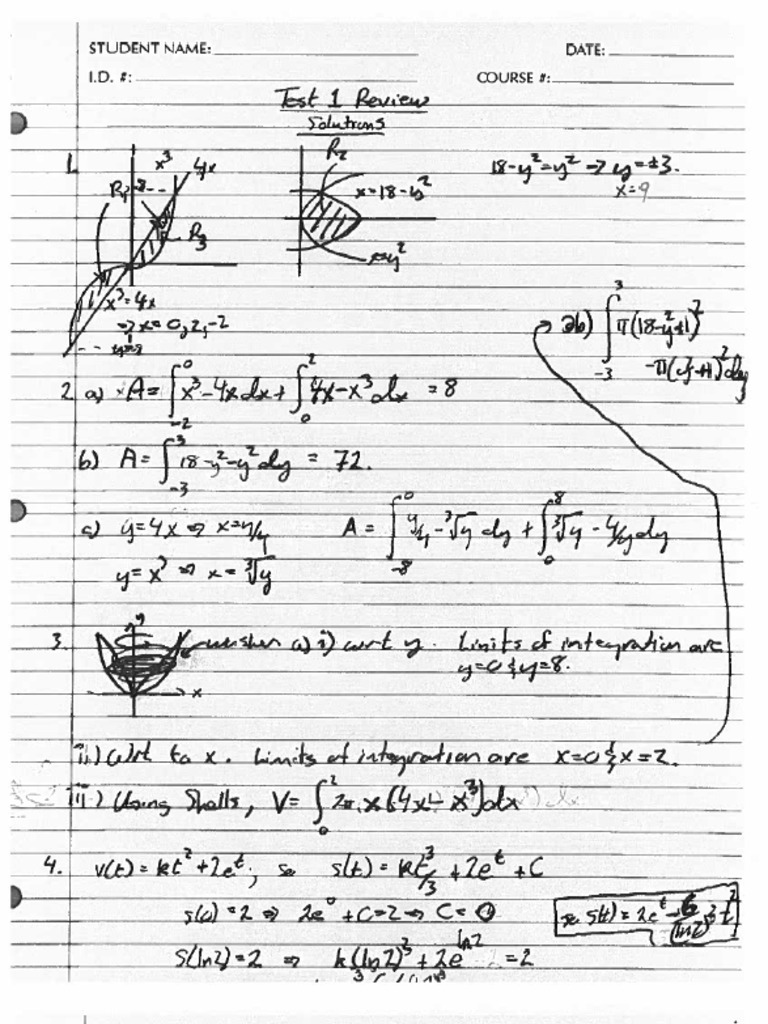 STUDENT NAME:
DATE:
I.D. #:
COURSE #:
Test 1 Review
Solutions
1.
x³
4x
R₁
8
R₃
x³=4x
⇒ x=0,2,-2
R₂
x=18-y²
x=y²
18-y²=y² → y=±3.
x=9
2b) ∫₋₃³ π(18-y²+1)²
-π(y²+1)²dy
2 a) A = ∫₋₂⁰ x³-4x dx + ∫₀² 4x-x³ dx = 8
b) A = ∫₋₃³ 18-y²-y² dy = 72.
c) y=4x ⇒ x=y/4 A = ∫₋₈⁰ y/4 - ³√y dy + ∫₀⁸ ³√y - y/4 dy
y=x³ ⇒ x=³√y
3.
y
x
washer a) i) wrt y. Limits of integration are
y=0 & y=8.
ii.) Wrt to x. Limits of integration are x=0 & x=2.
iii.) Using Shells, V= ∫₀² 2π x(4x - x³)dx
4. v(t) = kt²+2eᵗ, so s(t) = kt³/3 + 2eᵗ + C
s(0)=2 ⇒ 2e⁰+C=2 ⇒ C=0
s(ln2)=2 ⇒ k(ln2)³/3 + 2e^ln2 = 2